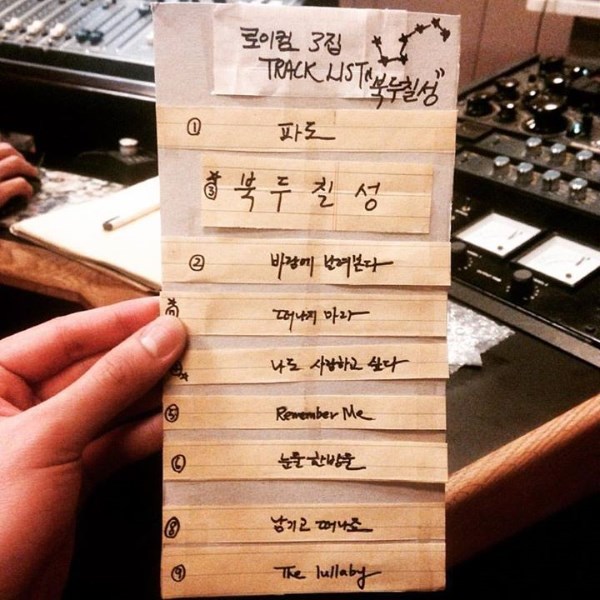 로이킴 3집
TRACK LIST "북두칠성"
① 파도
* ③ 북두칠성
② 바람에 날려본다
떠나지 마라
나도 사랑하고 싶다
⑤ Remember Me
⑥ 눈물 한방울
⑧ 남기고 떠나죠
⑨ The lullaby